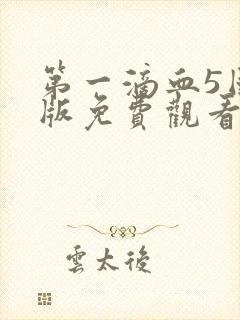 第一滴血5
版免費觀看
雲太後